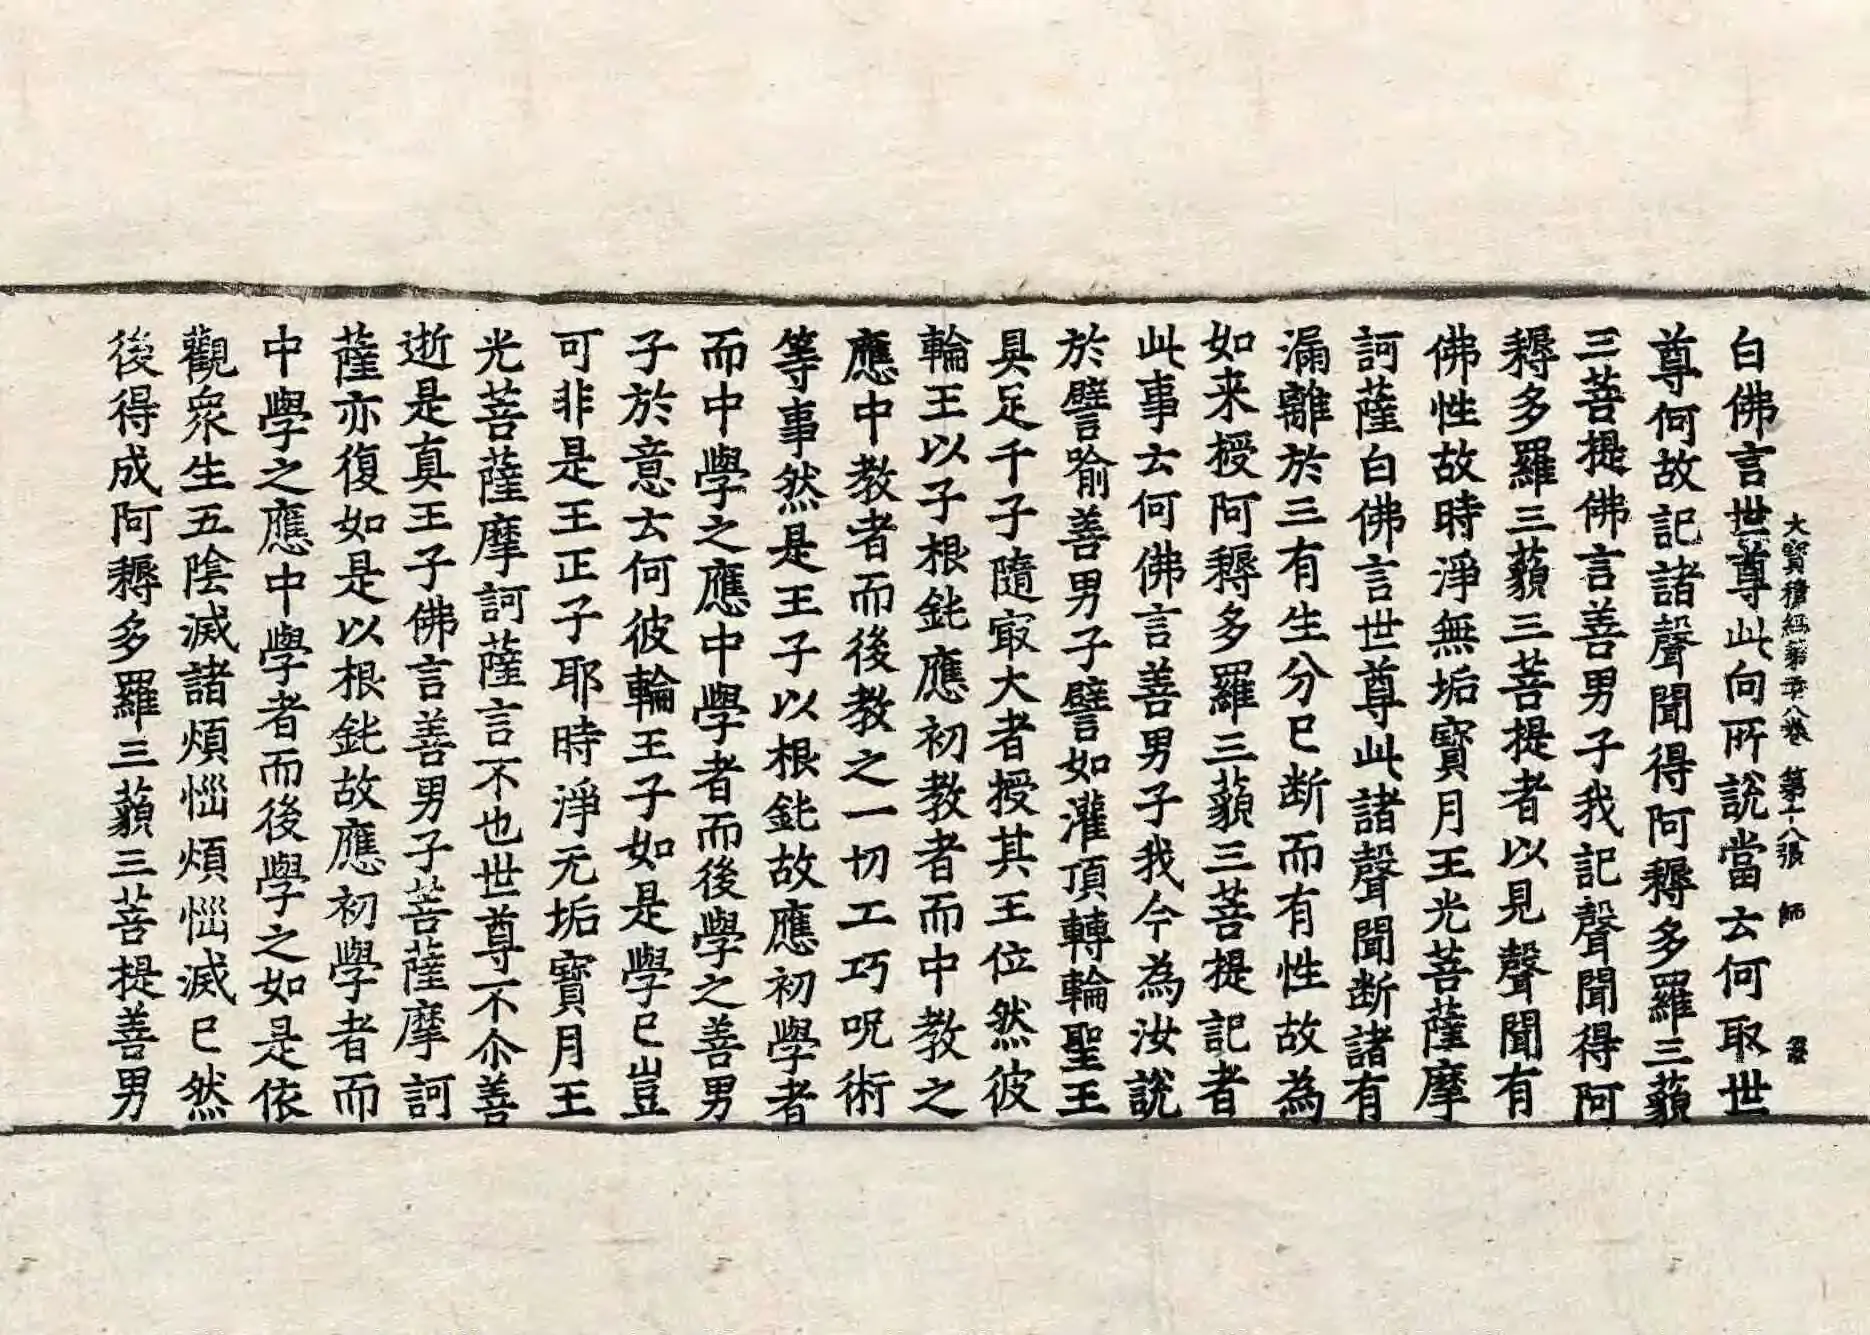 大寶積經第二十八卷 第十八張 師
白佛言世尊此向所說當云何取世
尊何故記諸聲聞得阿耨多羅三藐
三菩提佛言善男子我記聲聞得阿
耨多羅三藐三菩提者以見聲聞有
佛性故時淨無垢寶月王光菩薩摩
訶薩白佛言世尊此諸聲聞断諸有
漏離於三有生分已断而有性故為
如来授阿耨多羅三藐三菩提記者
此事云何佛言善男子我今為汝說
於譬喻善男子譬如灌頂轉輪聖王
具足千子隨㝡大者授其王位然彼
輪王以子根鈍應初教者而中教之
應中教者而後教之一切工巧呪術
等事然是王子以根鈍故應初學者
而中學之應中學者而後學之善男
子於意云何彼輪王子如是學已豈
可非是王正子耶時淨无垢寶月王
光菩薩摩訶薩言不也世尊不尒善
逝是真王子佛言善男子菩薩摩訶
薩亦復如是以根鈍故應初學者而
中學之應中學者而後學之如是依
觀衆生五陰滅諸煩惱煩惱滅已然
後得成阿耨多羅三藐三菩提善男